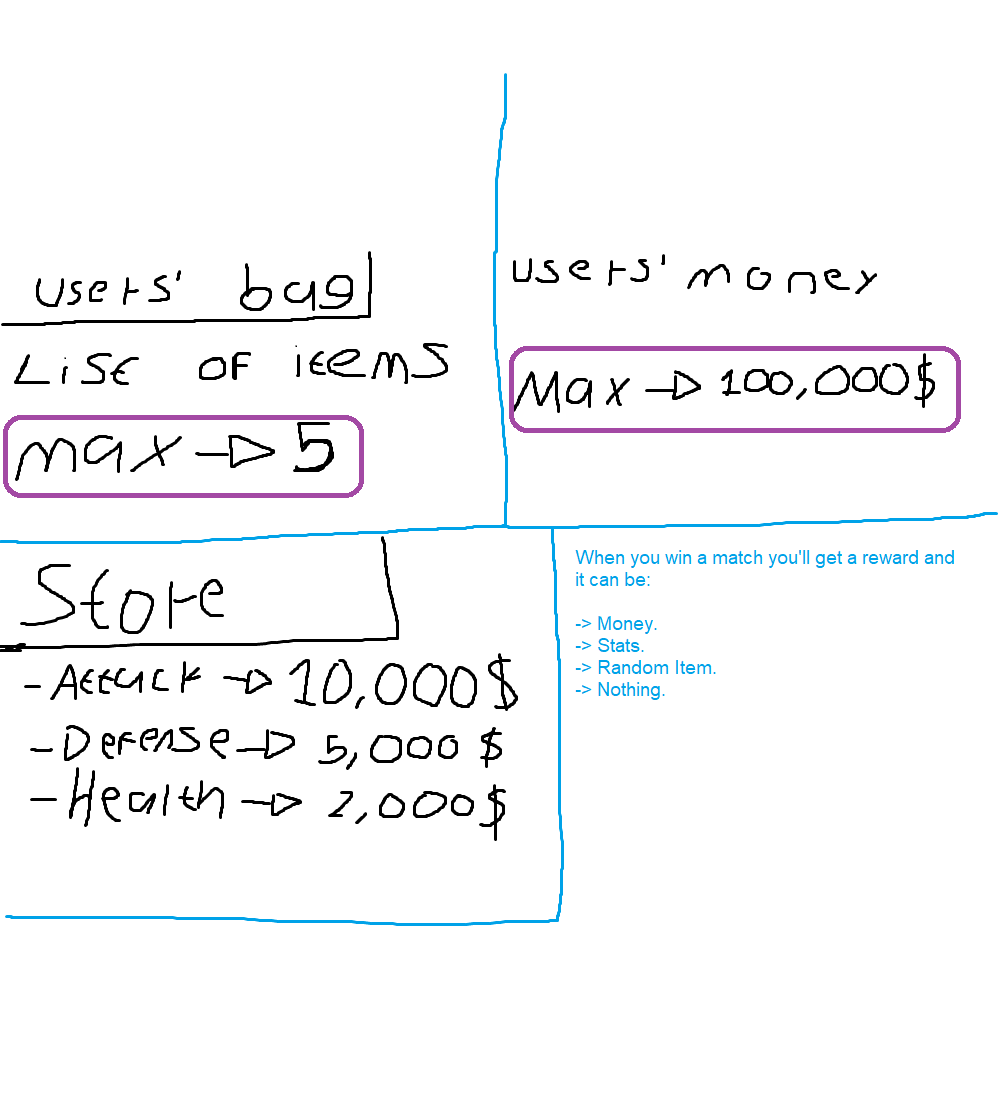 users' bag
List of items
max -> 5
users' money
Max -> 100,000$
Store
- Attack -> 10,000$
- Defense -> 5,000 $
- Health -> 2,000$
When you win a match you'll get a reward and
it can be:
-> Money.
-> Stats.
-> Random Item.
-> Nothing.